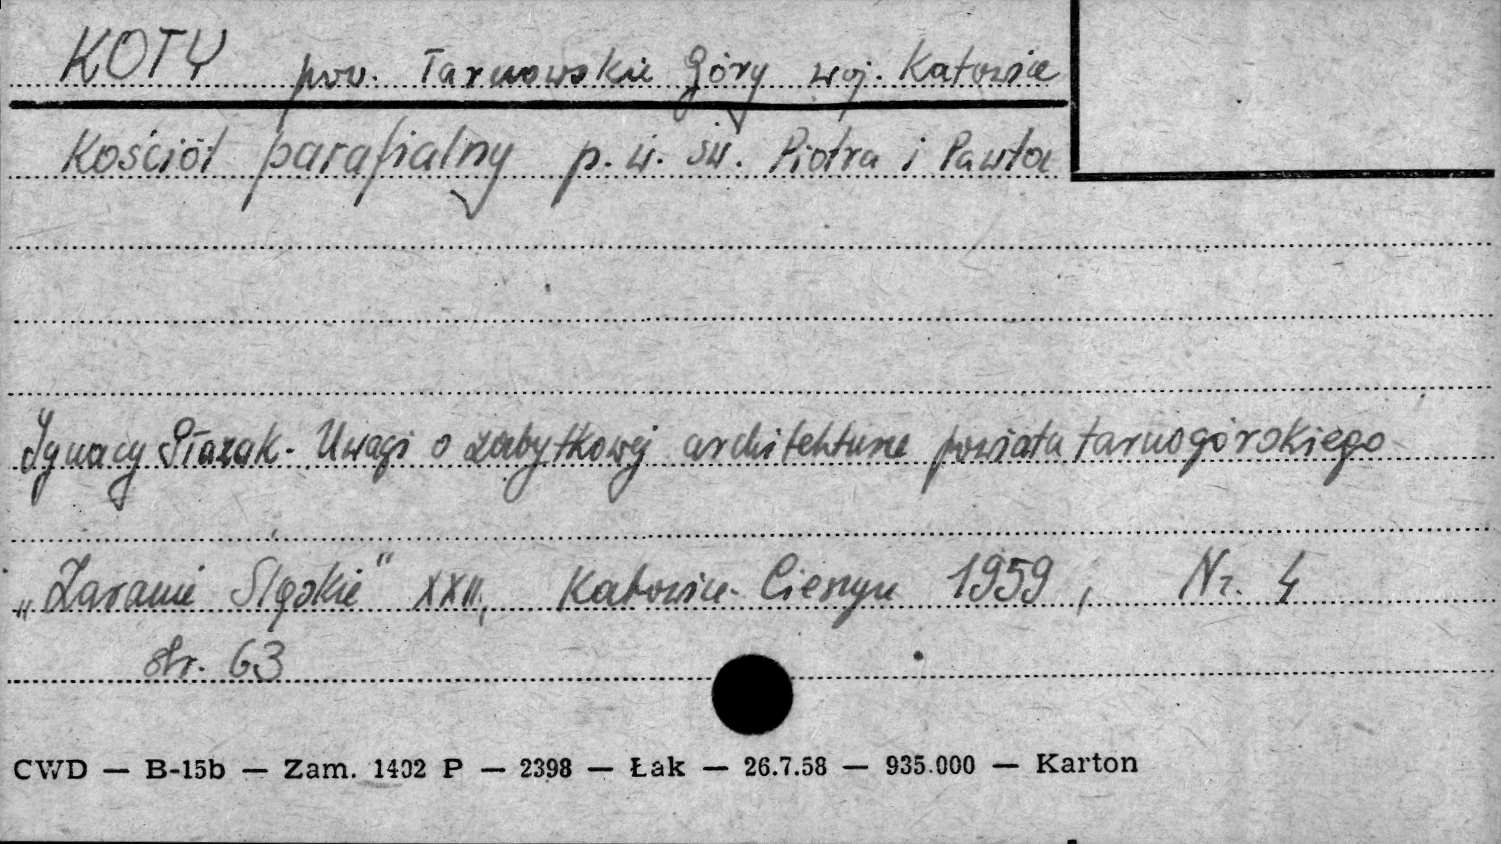 KOTY pow. Tarnowskie Góry woj. Katowice
Kościół parafialny p.w. św. Piotra i Pawła
Ignacy Płazak - Uwagi o zabytkowej architekturze powiatu tarnogórskiego
„Zaranie Śląskie" XXII, Katowice-Cieszyn 1959, Nr. 4
str. 63
CWD — B-15b — Zam. 1402 P — 2398 — Łak — 26.7.58 — 935.000 — Karton